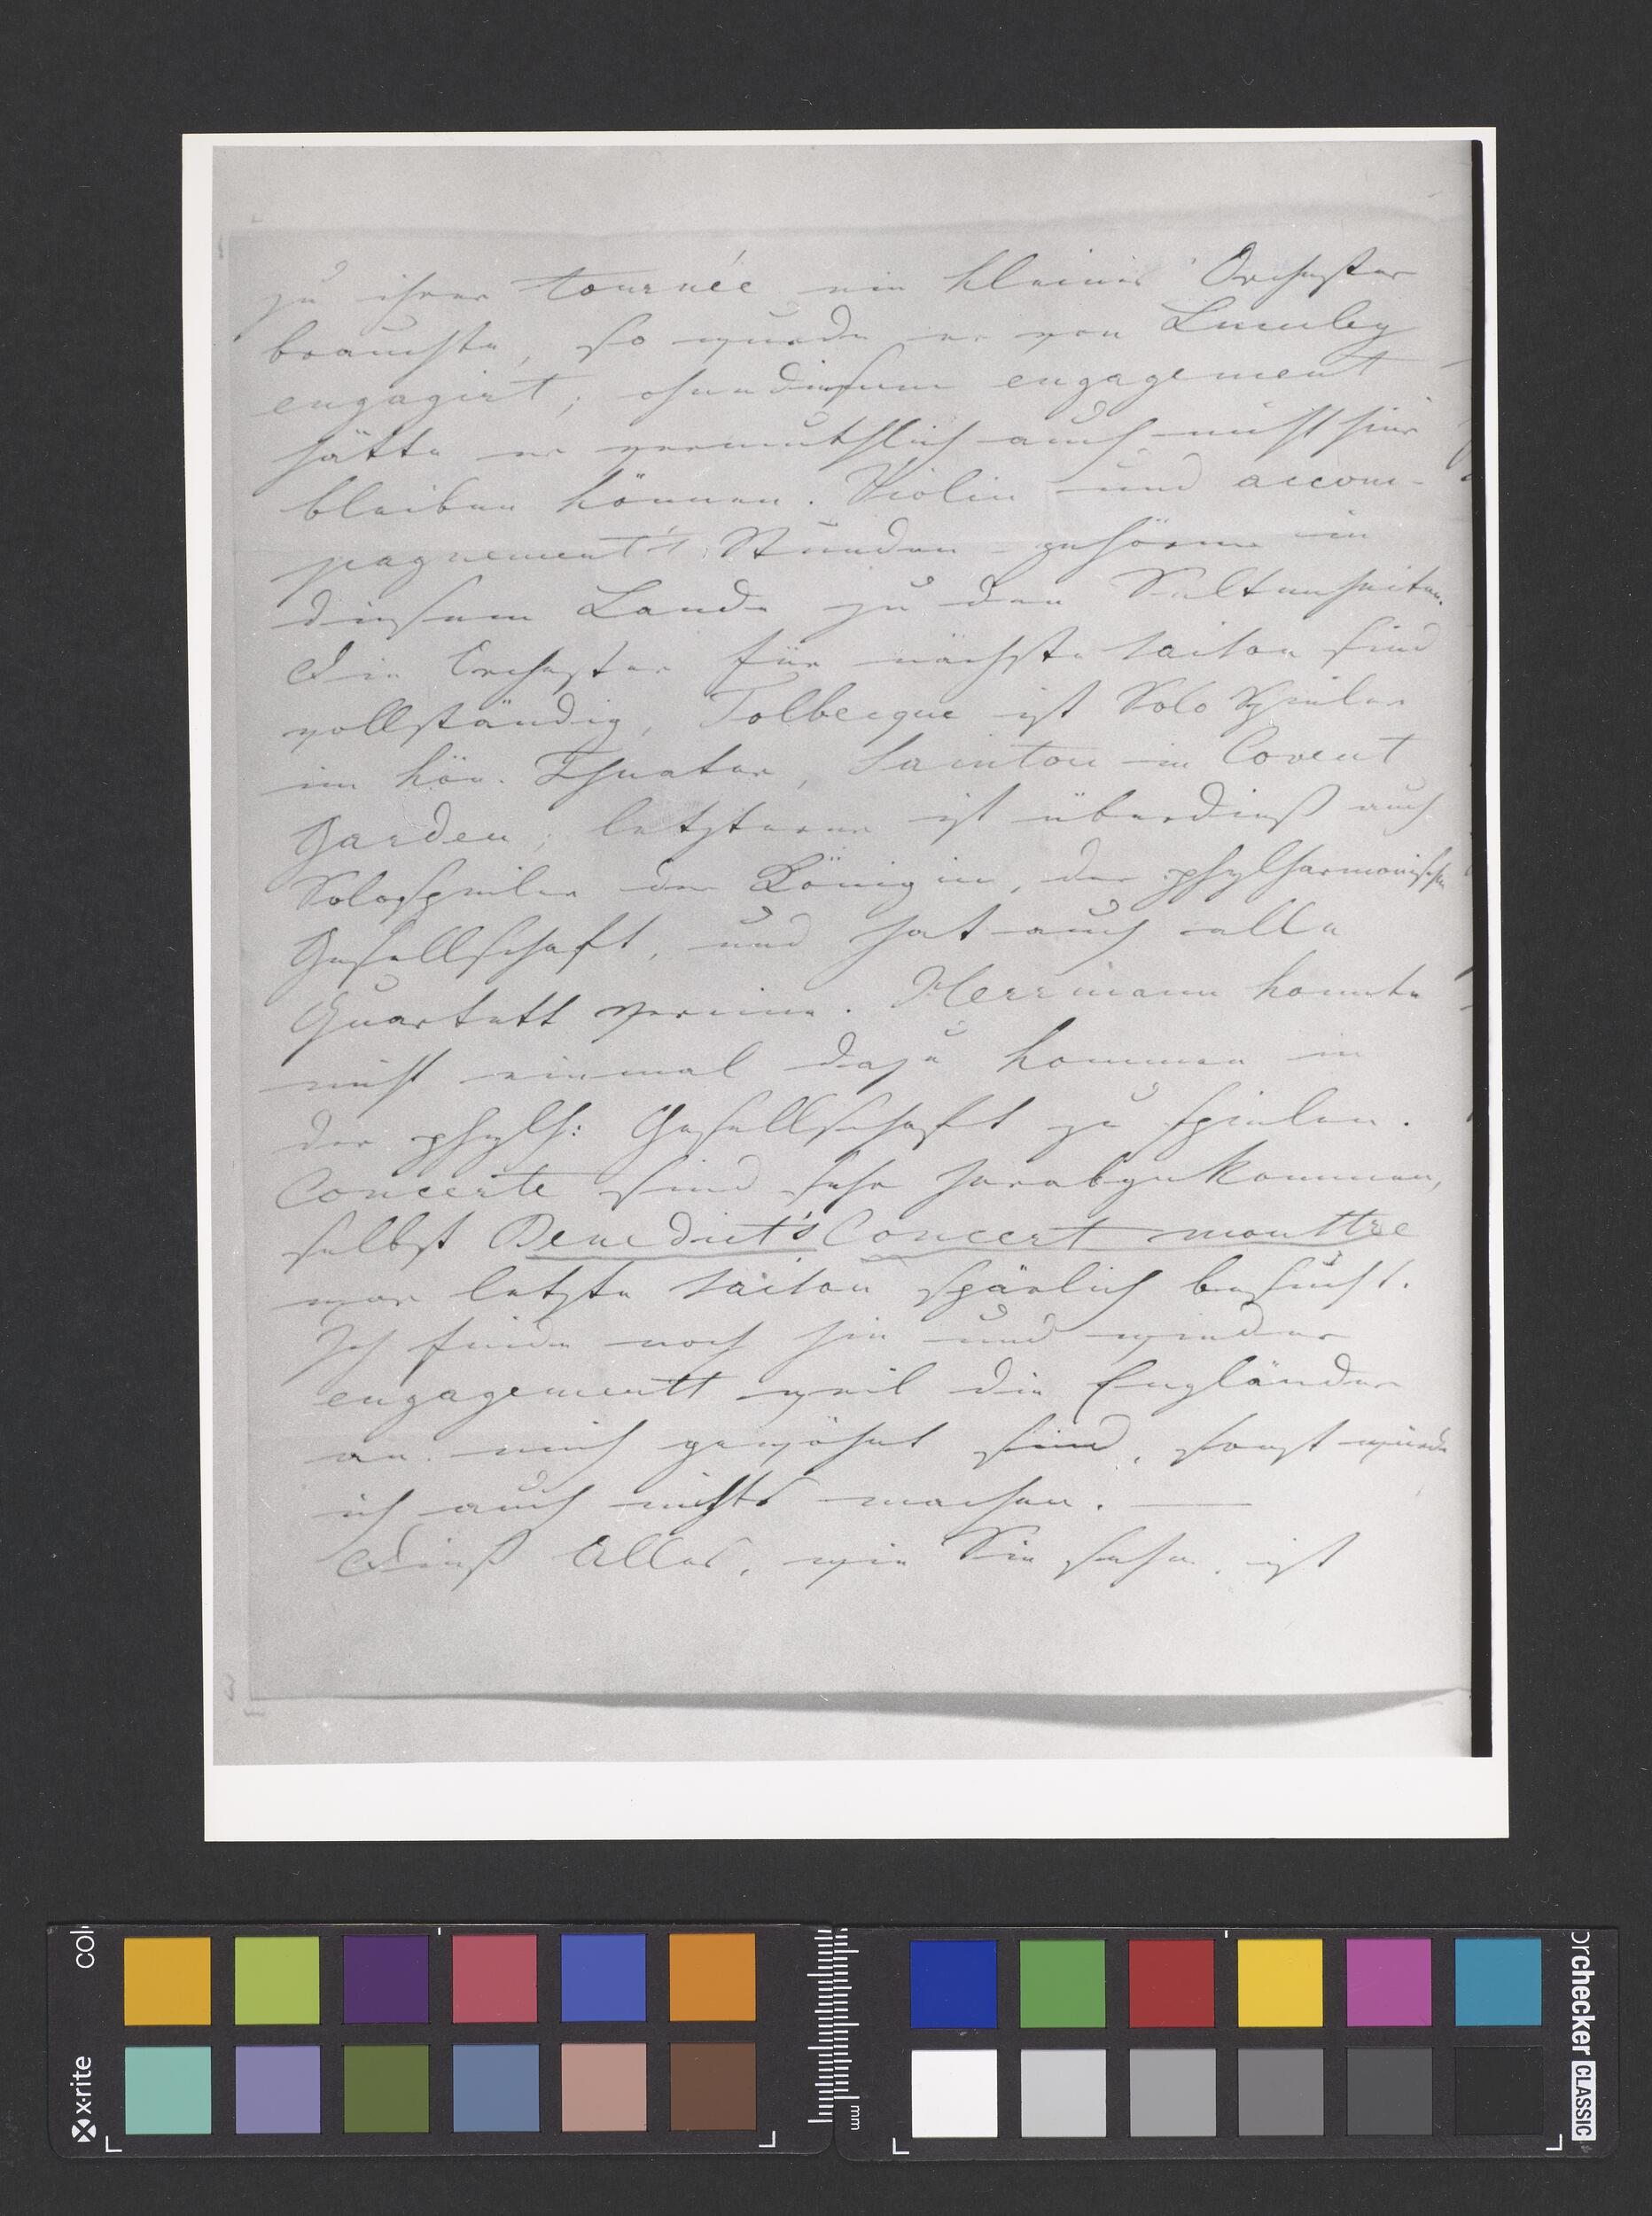 zu ihrer tournée ein kleines Orchester
brauchte, so wurde er von Lumley
engagirt; ohne diesem engagement
hätte er vermuthlich auch nicht hier
bleiben können. Violin und accom-
pagnement's Stunden gehören in
diesem Lande zu den Seltenheiten.
Die Orchester für nächste saison sind
vollständig, Tolbecque ist Solo Spieler
im kön. Theater, Sainton in Covent
Garden; letzterer ist überdieß auch
Solospieler der Königin, der phylharmonischen
Gesellschaft, und hat auch alle
Quartett Vereine. Herrmann konnte
nicht einmal dazu kommen in
der phylh: Gesellschaft zu spielen.
Concerte sind sehr herabgekommen,
selbst Benedict's Concert monstre
war letzte saison spärlich besucht.
Ich finde noch hin und wieder
engagements weil die Engländer
an mich gewöhnt sind, sonst würde
ich auch nichts machen. —
Dieß Alles, wie Sie sehen, ist
x-rite
col
mm
orchecker CLASSIC